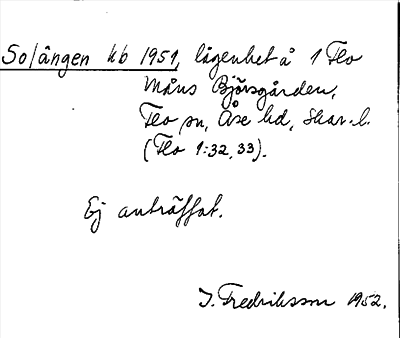 Solängen kb 1951, lägenhet å 1 Flo
Måns Björsgården,
Flo sn, Åse hd, Skar. l.
(Flo 1:32, 33).
Ej anträffat.
J. Fredriksson 1952.